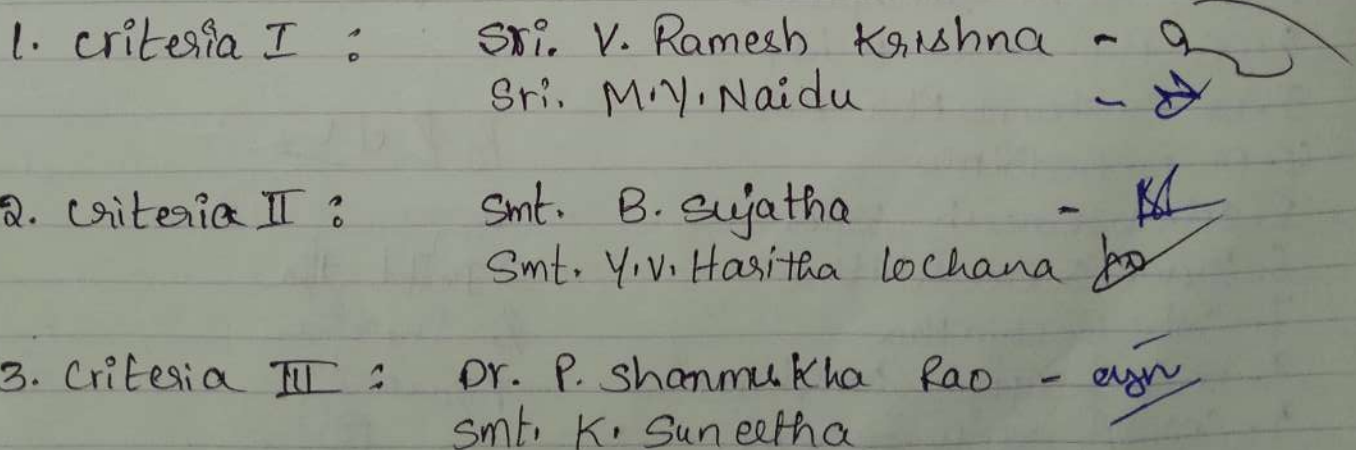 1. Criteria I : Sri. V. Ramesh Krishna -
Sri. M.Y. Naidu -
2. Criteria II : Smt. B. Sujatha -
Smt. Y.V. Haritha Lochana
3. Criteria III : Dr. P. Shanmukha Rao -
Smt. K. Suneetha